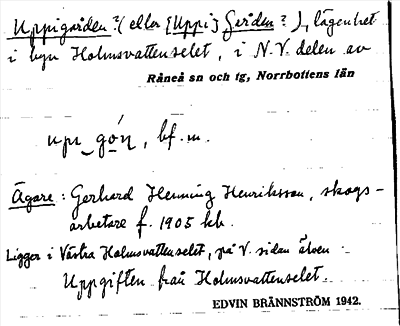 Uppigården? (eller [Uppi] Gården?), lägenhet
i byn Holmsvattenselet, i N.V. delen av
Råneå sn och tg, Norrbottens län
upı_gón, bf. m.
Ägare: Gerhard Henning Henriksson, skogs-
arbetare f. 1905 kb.
Ligger i Västra Holmsvattenselet, på V. sidan älven.
Uppgiften från Holmsvattenselet.
EDVIN BRÄNNSTRÖM 1942.